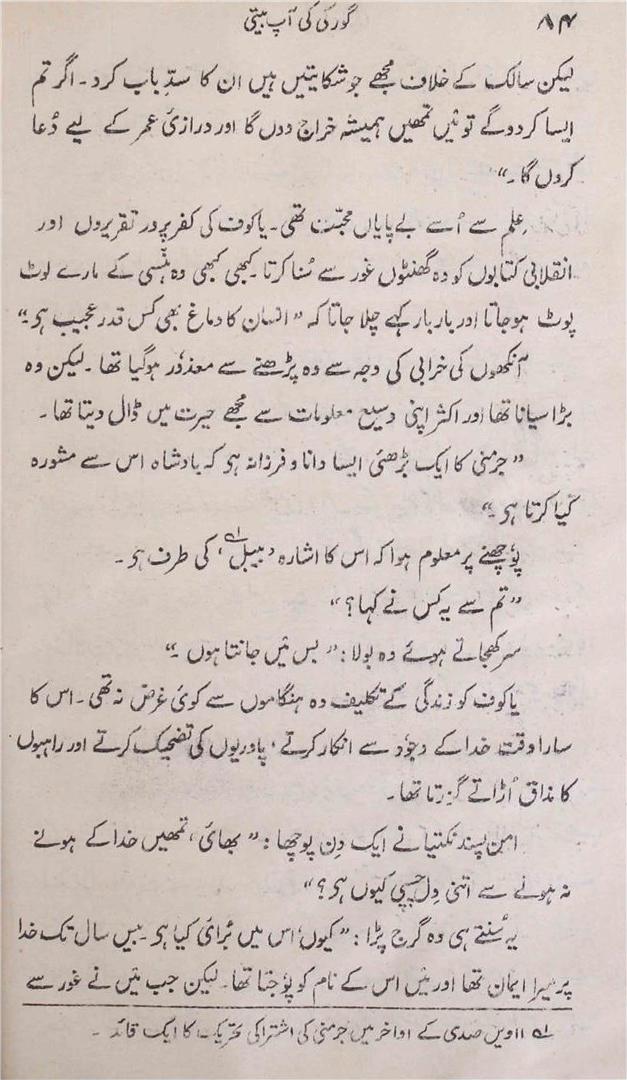 ۸۴ گورکی کی آپ بیتی
لیکن سالک کے خلاف مجھے جو شکایتیں ہیں ان کا سدِّ باب کرد۔ اگر تم
ایسا کر دوگے تو میں تمھیں ہمیشہ خراج دوں گا اور درازیٔ عمر کے لیے دُعا
کروں گا۔“
علم سے اُسے بے پایاں محبّت تھی۔ یاکوف کی کفر پرور تقریروں اور
انقلابی کتابوں کو وہ گھنٹوں غور سے سُنا کرتا۔ کبھی کبھی وہ ہنسی کے مارے لوٹ
پوٹ ہوجاتا اور بار بار کہے چلا جاتا کہ ”انسان کا دماغ بھی کس قدر عجیب ہی۔“
آنکھوں کی خرابی کی وجہ سے وہ پڑھنے سے معذور ہوگیا تھا۔ لیکن وہ
بڑا سیانا تھا اور اکثر اپنی وسیع معلومات سے مجھے حیرت میں ڈال دیتا تھا۔
”جرمنی کا ایک بڑھئی ایسا دانا و فرزانہ ہی کہ بادشاہ اس سے مشورہ
کیا کرتا ہی۔“
پوچھنے پر معلوم ہوا کہ اس کا اشارہ ’بیبل‘ کی طرف ہی۔
”تم سے یہ کس نے کہا؟“
سر کھجاتے ہوئے وہ بولا: ”بس میں جانتا ہوں۔“
یاکوف کو زندگی کے تکلیف دہ ہنگاموں سے کوئی غرض نہ تھی۔ اس کا
سارا وقت خدا کے وجود سے انکار کرتے، پادریوں کی تضحیک کرتے اور راہبوں
کا مذاق اُڑاتے گزرتا تھا۔
امن پسند نکتیا نے ایک دن پوچھا: ”بھائی، تمھیں خدا کے ہونے
نہ ہونے سے اتنی دل چسپی کیوں ہی؟“
یہ سُنتے ہی وہ گرج پڑا: ”کیوں؟ اس میں بُرائی کیا ہی۔ بیس سال تک خدا
پر میرا ایمان تھا اور میں اس کے نام کو پوجتا تھا۔ لیکن جب میں نے غور سے
لہ ۱۱ویں صدی کے اواخر میں جرمنی کی اشتراکی تحریک کا ایک قائد۔